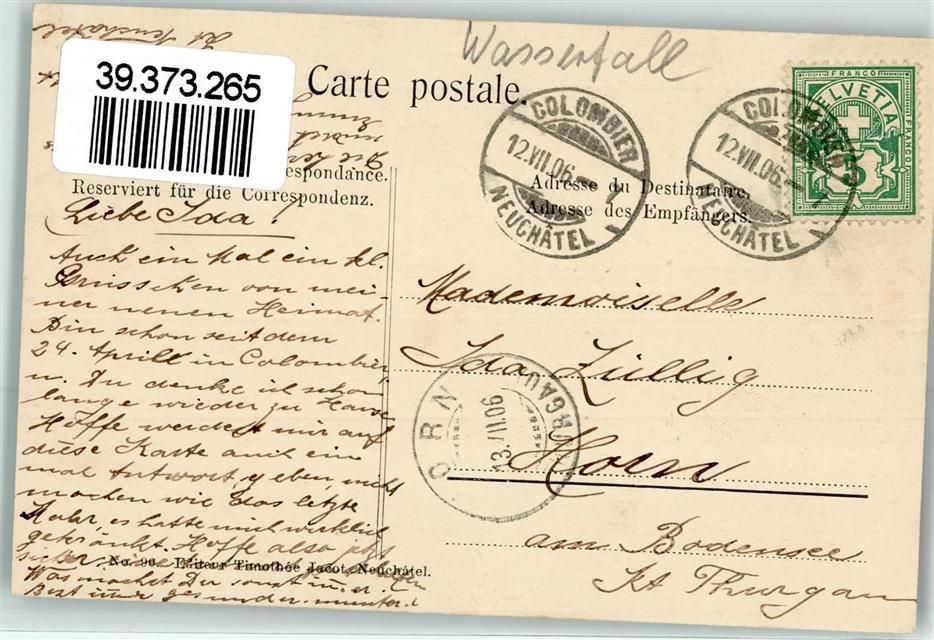 Wasserfall
39.373.265
Carte postale.
Reserviert für die Correspondenz.
Adresse du Destinataire.
Adresse des Empfängers.
FRANCO
HELVETIA
5
COLOMBIER
12.VII.06.
NEUCHÂTEL
COLOMBIER
12.VII.06.
NEUCHÂTEL
Liebe Ida!
Auch ein Mal ein kl.
Grüsschen von mei-
ner neuen Heimat.
Bin schon seit dem
24. Aprill in Colombier
u. Du denke ich schon
lange wieder zu Hause
Hoffe werdest mir auf
diese Karte auch ein
mal Antwort geben, nicht
machen wie das letzte
Mahl, es hatte mich wirklich
gekränkt. Hoffe also jetzt
Was machst Du sonst
gesund u. munter
Mademoiselle
Ida Züllig
Horn
am Bodensee
Kt Thurgau
HORN
13.VII.06
THURGAU
No. 90. Editeur Timothée Jacot, Neuchâtel.